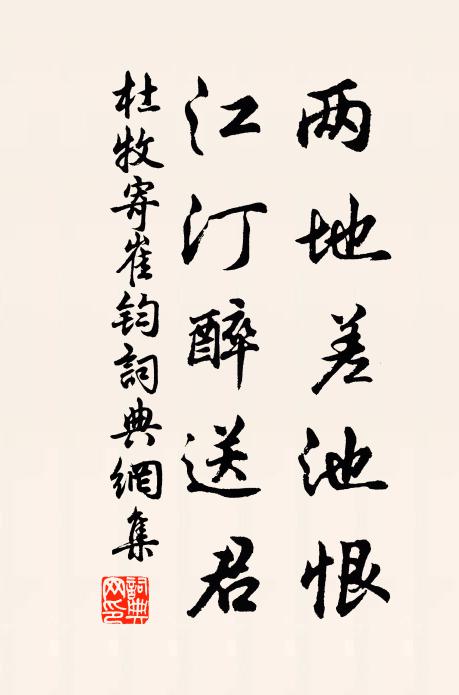 两地差池恨
江汀醉送君
杜牧寄崔钧詞典網集
詞典网印